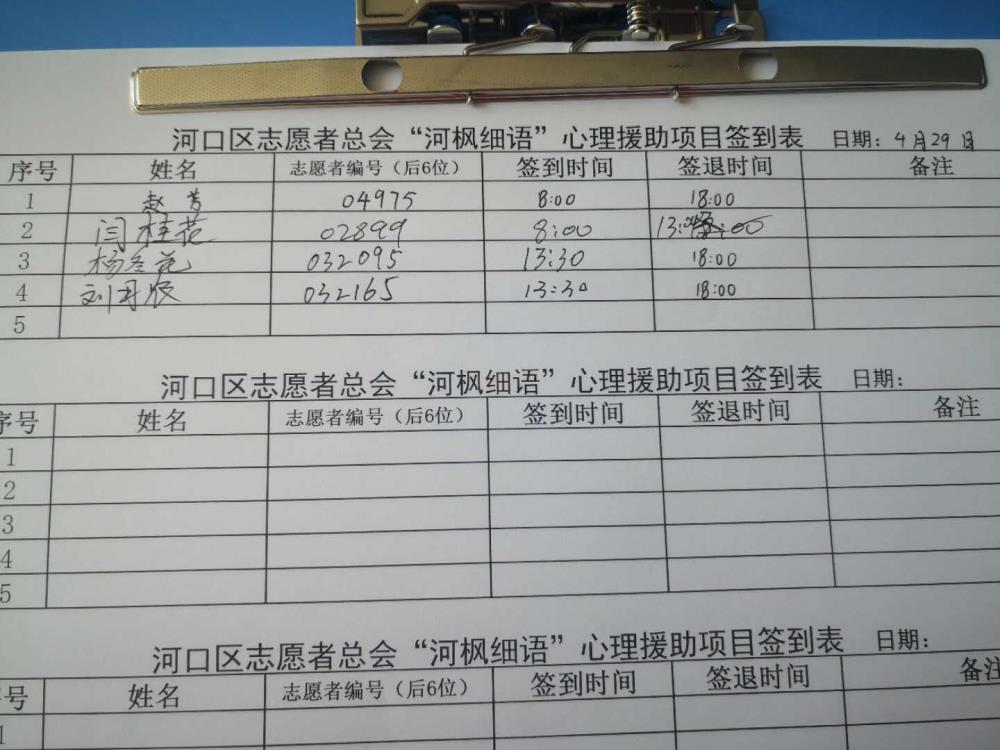 河口区志愿者总会“河枫细语”心理援助项目签到表 日期：4月29日
序号 姓名 志愿者编号（后6位） 签到时间 签退时间 备注
1 赵芳 04975 8:00 18:00
2 闫桂花 02899 8:00 13:00
3 杨冬花 032095 13:30 18:00
4 刘 032165 13:30 18:00
5
河口区志愿者总会“河枫细语”心理援助项目签到表 日期：
序号 姓名 志愿者编号（后6位） 签到时间 签退时间 备注
1
2
3
4
5
河口区志愿者总会“河枫细语”心理援助项目签到表 日期：
号 姓名 志愿者编号（后6位） 签到时间 签退时间 备注
1